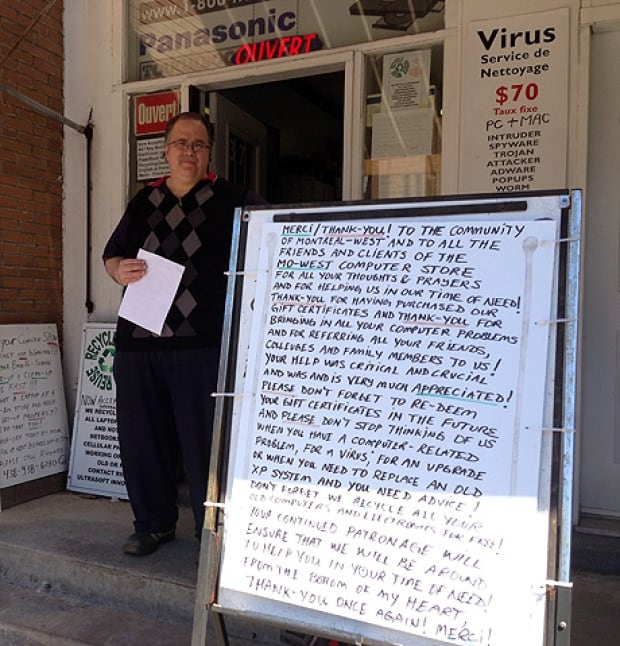 www.1-800
Panasonic
OUVERT
Ouvert
Virus
Service de
Nettoyage
$70
Taux fixe
PC + MAC
INTRUDER
SPYWARE
TROJAN
ATTACKER
ADWARE
POPUPS
WORM
MERCI/THANK-YOU! TO THE COMMUNITY
OF MONTREAL-WEST AND TO ALL THE
FRIENDS AND CLIENTS OF THE
MO-WEST COMPUTER STORE
FOR ALL YOUR THOUGHTS & PRAYERS
AND FOR HELPING US IN OUR TIME OF NEED!
THANK-YOU FOR HAVING PURCHASED OUR
GIFT CERTIFICATES AND THANK-YOU FOR
BRINGING IN ALL YOUR COMPUTER PROBLEMS
AND FOR REFERRING ALL YOUR FRIENDS,
COLLEUGES AND FAMILY MEMBERS TO US!
YOUR HELP WAS CRITICAL AND CRUCIAL
AND WAS AND IS VERY MUCH APPRECIATED!
PLEASE DON'T FORGET TO RE-DEEM
YOUR GIFT CERTIFICATES IN THE FUTURE
AND PLEASE DON'T STOP THINKING OF US
WHEN YOU HAVE A COMPUTER-RELATED
PROBLEM, FOR A VIRUS, FOR AN UPGRADE
OR WHEN YOU NEED TO REPLACE AN OLD
XP SYSTEM AND YOU NEED ADVICE!
DON'T FORGET WE RECYCLE ALL YOUR
OLD COMPUTERS AND ELECTRONICS FOR FREE!
YOUR CONTINUED PATRONAGE WILL
ENSURE THAT WE WILL BE AROUND
TO HELP YOU IN YOUR TIME OF NEED!
FROM THE BOTTOM OF MY HEART,
THANK-YOU ONCE AGAIN! MERCI!
RECYCLE
REUSE
NOW ACCEP
WE RECYCL
ALL LAPTO
AND NO
NETBOOK
CELLULAR P
WORKING O
OLD OR
CONTACT RI
ULTRASOFT INNO
YOUR COMPUTER
FIRST!!!
PLEASE CALL
438-938-6740